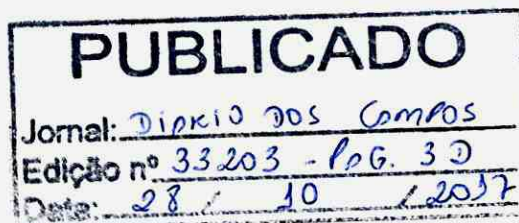 PUBLICADO
Jornal: DIÁRIO DOS CAMPOS
Edição nº 33203 - PAG. 3D
Data: 28 / 10 / 2017